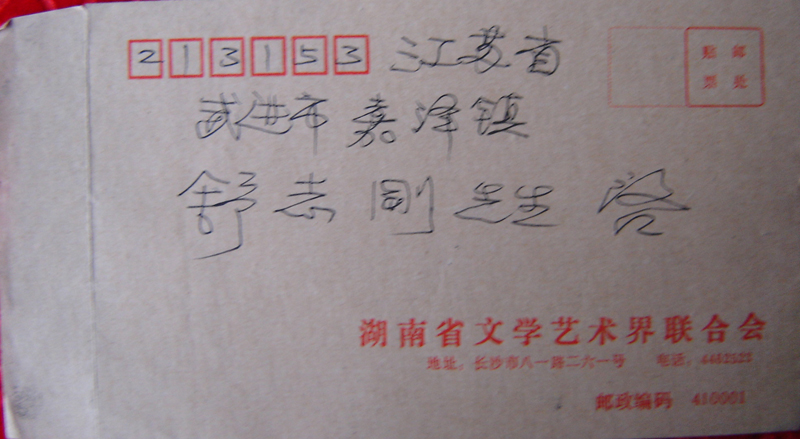 213153 江苏省
贴 邮
票 处
武进市 嘉泽镇
舒志刚 先生 启
湖南省文学艺术界联合会
地址：长沙市八一路二六一号 电话：4462523
邮政编码 410001